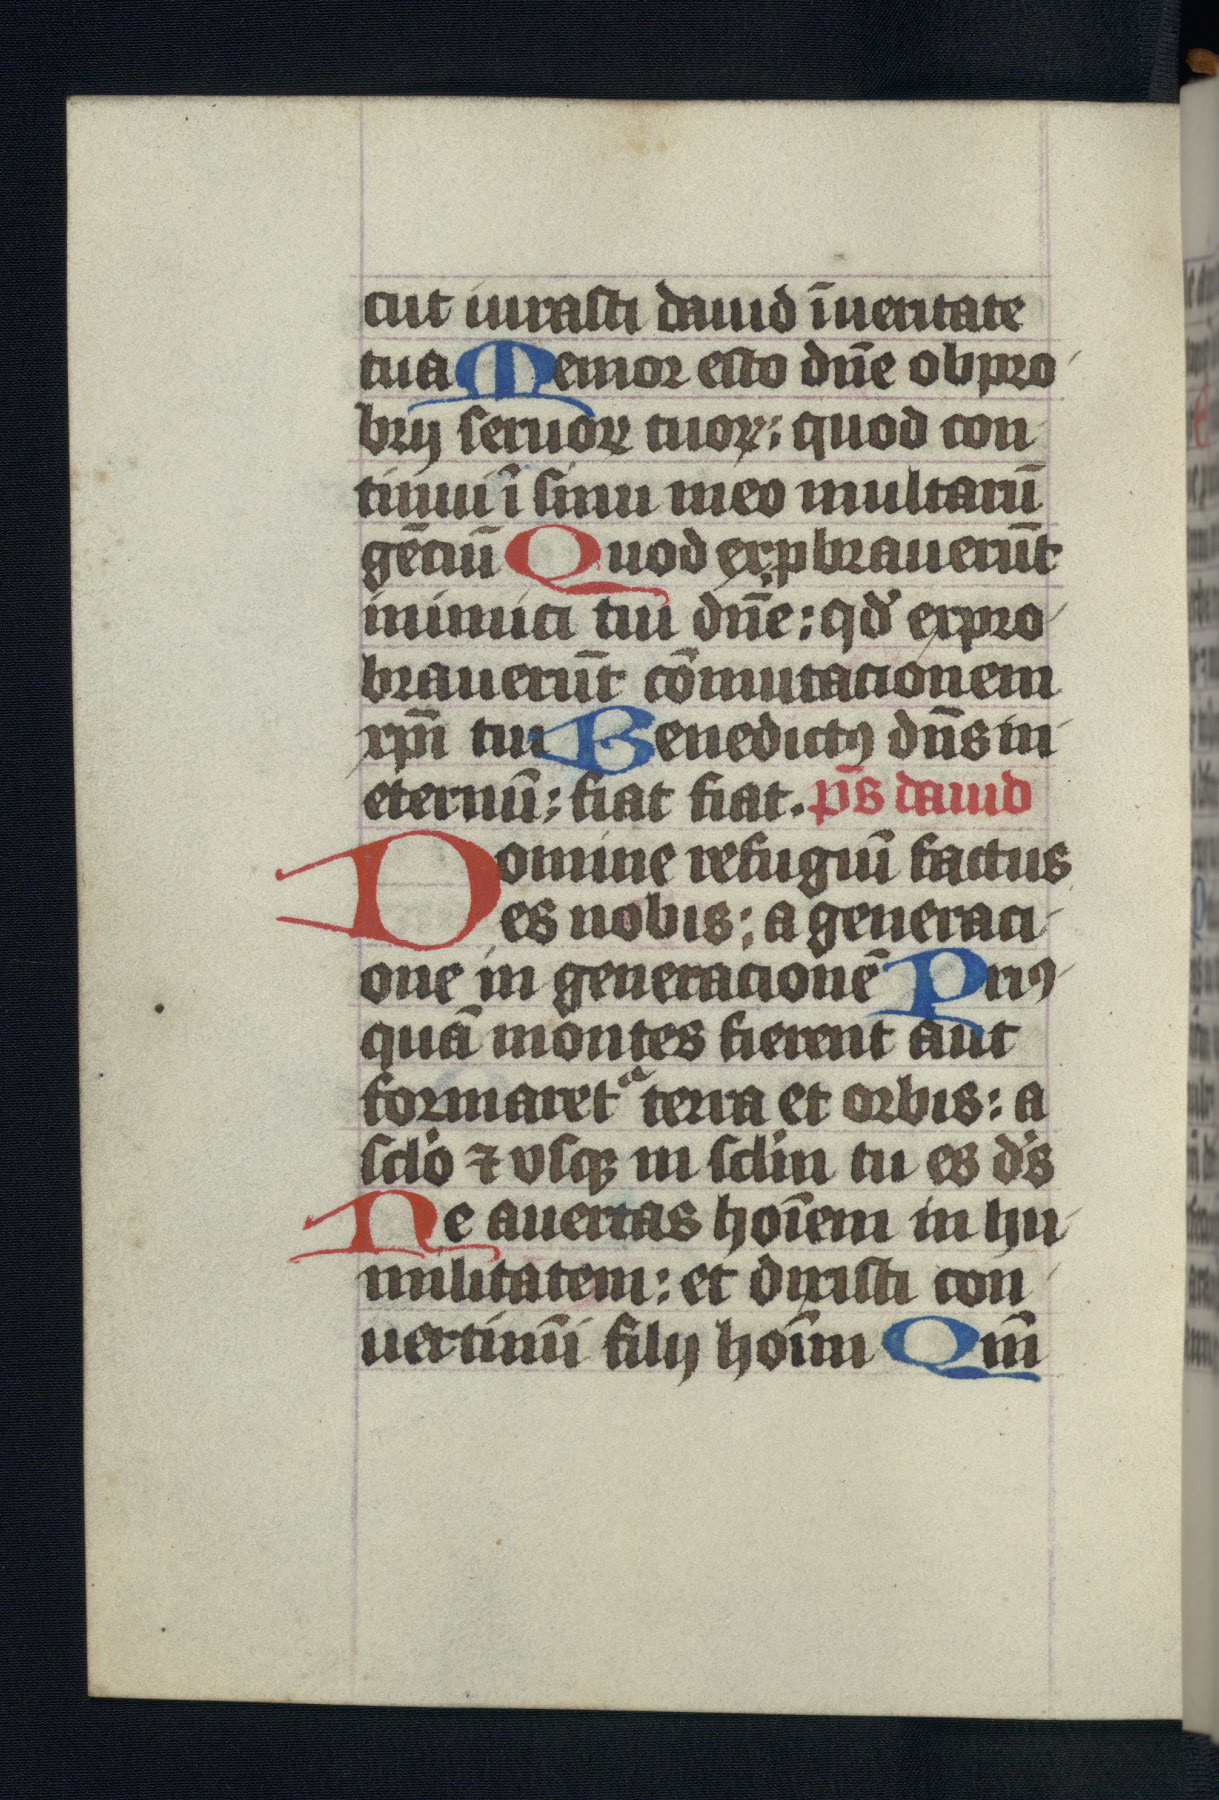 cut iurasti dauid ī ueritate
tua Memor esto dn̄e obpro
brij seruoꝝ tuoꝝ: quod con
tinui ī sinu meo multarū
gēciū Quod exp̱brauerūt
inimici tui dn̄e: qd̕ expro
brauerūt cōmutacionem
xp̄i tui Benedictꝰ dn̄s in
eternū: fiat fiat. ps̄ dauid
Domine refugiū factus
es nobis: a generaci
one in generacionē Priꝰ
quā montes fierent aut
formaretᵃ terra et orbis: a
scl̕o ⁊ vsqꝫ in scl̕m tu es d̕s
Ne auertas hoīem in hu
militatem: et dixisti con
uertimī filij hoīm Qm̄